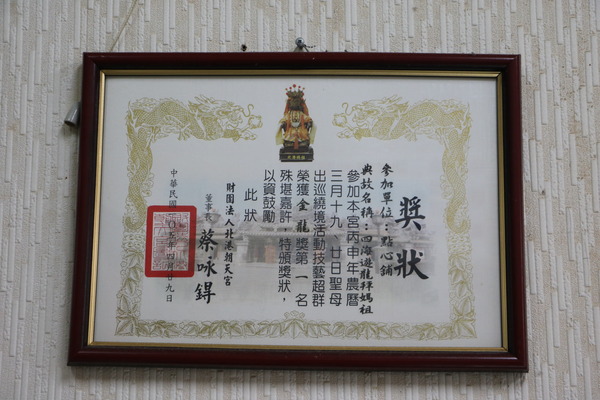 獎狀
參加單位：點心舖
典故名稱：四海遊龍拜媽祖
參加本宮丙申年農曆
三月十九、廿日聖母
出巡繞境活動技藝超群
榮獲金龍獎第一名
殊堪嘉許，特頒獎狀，
以資鼓勵
此狀
財團法人北港朝天宮
董事長 蔡咏鍀
中華民國一〇五年四月廿九日